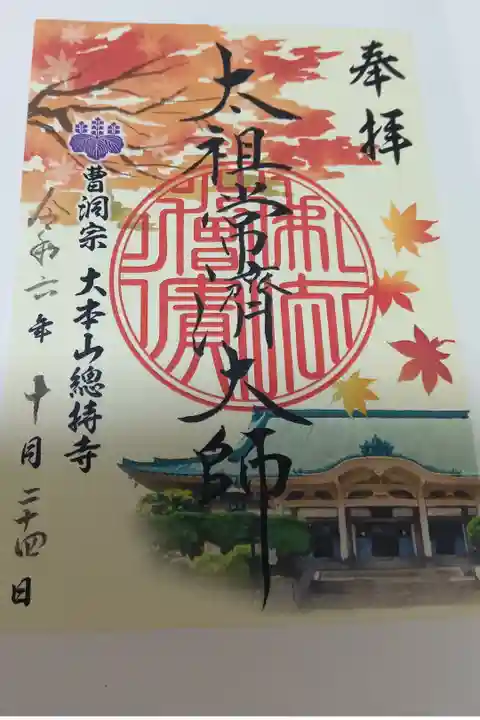 奉拝
太祖常濟大師
曹洞宗 大本山總持寺
令和六年十月二十四日
佛法僧寶